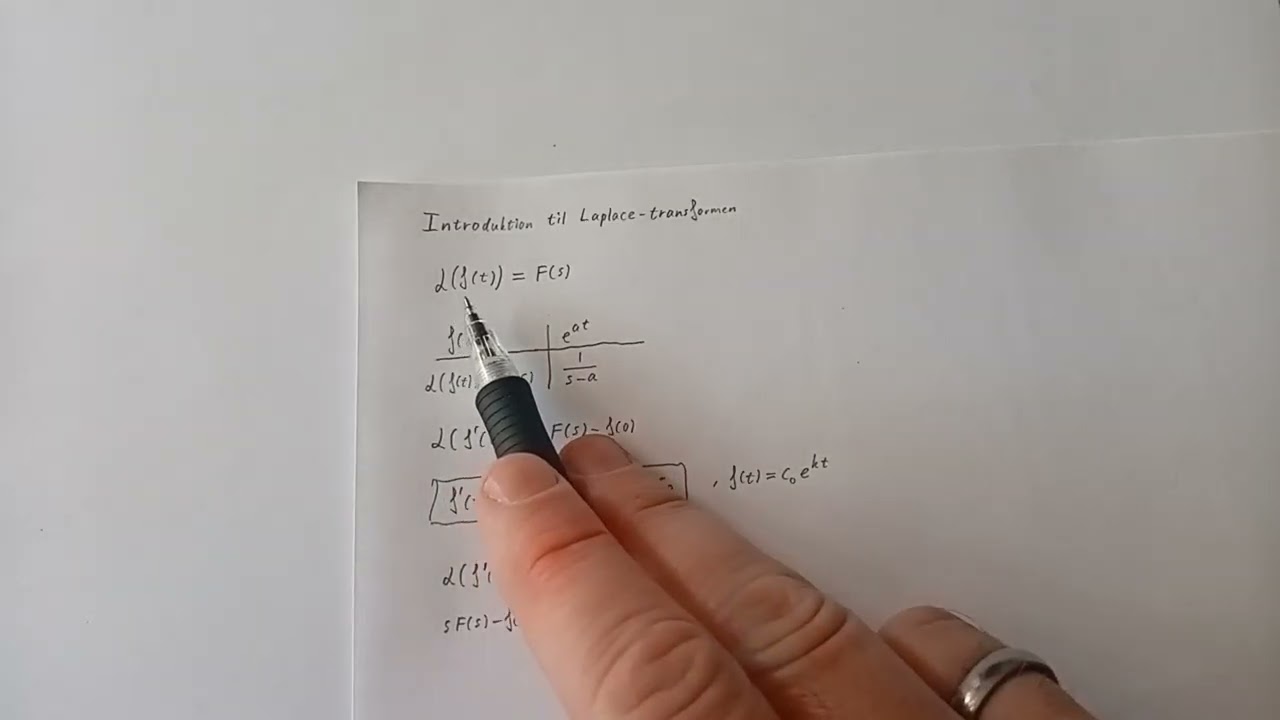 Introduktion til Laplace-transformen
ℒ(f(t)) = F(s)
f( e^{at}
ℒ(f(t) s) \frac{1}{s-a}
ℒ(f'( F(s) - f(0)
f'( , f(t) = c_0 e^{kt}
ℒ(f'(
sF(s) - f(